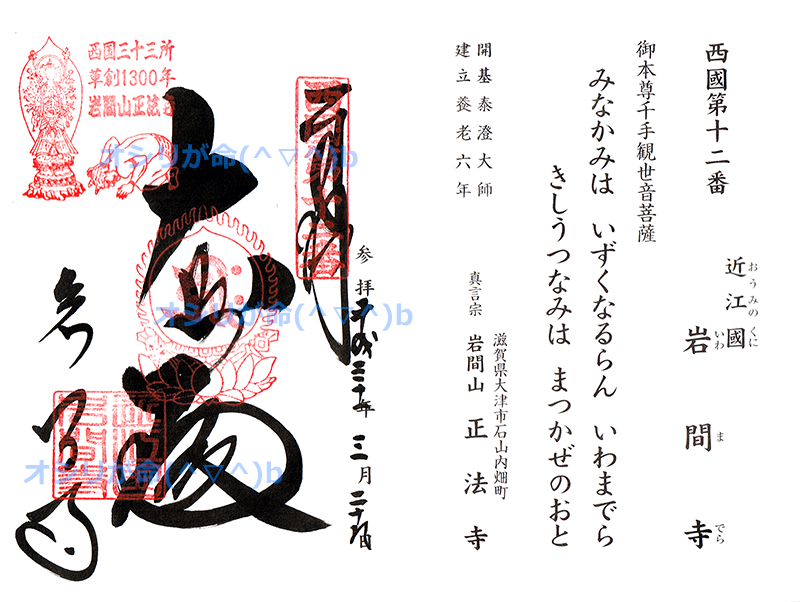 西國第十二番
近江國
おうみのくに
岩間寺
いわまでら
御本尊千手観世音菩薩
みなかみは いずくなるらん いわまでら
きしうつなみは まつかぜのおと
開基泰澄大師
建立養老六年
滋賀県大津市石山内畑町
真言宗 岩間山 正法寺
奉拝
参拝平成三十年三月二十九日
大悲殿
岩間寺
西国三十三所
草創1300年
岩間山正法寺
オシリが命(^▽^)b
オシリが命(^▽^)b
オシリが命(^▽^)b